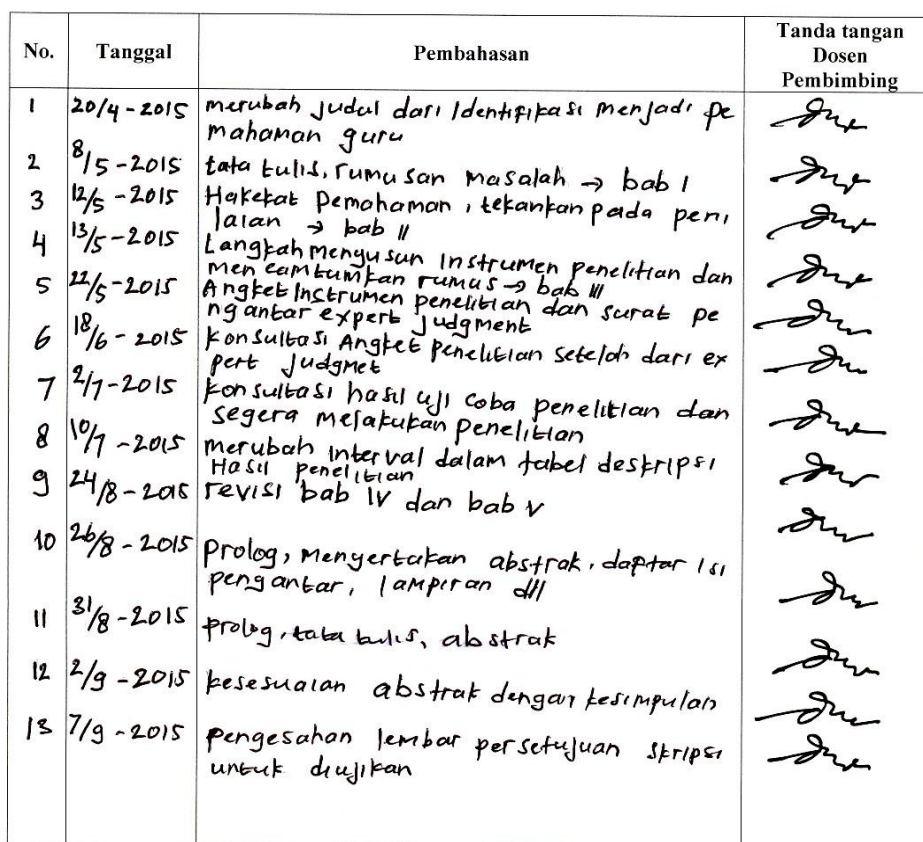 No. Tanggal Pembahasan Tanda tangan
Dosen
Pembimbing
1 20/4 - 2015 merubah judul dari Identifikasi menjadi pe
mahaman guru
2 8/5 - 2015 tata tulis, rumusan masalah → bab I
3 12/5 - 2015 Hakekat Pemahaman, tekankan pada peni
laian → bab II
4 13/5 - 2015 Langkah menyusun instrumen penelitian dan
mencamtumkan rumus → bab III
5 22/5 - 2015 Angket Instrumen penelitian dan surat pe
ngantar expert judgment
6 18/6 - 2015 Konsultasi Angket penelitian setelah dari ex
pert judgmet
7 2/7 - 2015 Konsultasi hasil uji coba penelitian dan
segera melakukan penelitian
8 10/7 - 2015 merubah interval dalam tabel deskripsi
Hasil penelitian
9 24/8 - 2015 revisi bab IV dan bab V
10 26/8 - 2015 prolog, Menyertakan abstrak, daptar isi
pengantar, lampiran dll
11 31/8 - 2015 prolog, tata tulis, abstrak
12 2/9 - 2015 kesesuaian abstrak dengan kesimpulan
13 7/9 - 2015 pengesahan lembar persetujuan skripsi
untuk diujikan